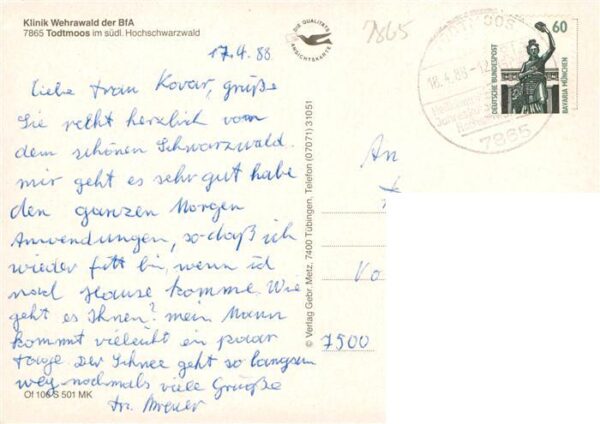 Klinik Wehrawald der BfA
7865 Todtmoos im südl. Hochschwarzwald
17.4.88
liebe Frau Kovar, grüße
Sie recht herzlich vom
dem schönen Schwarzwald.
mir geht es sehr gut habe
den ganzen Morgen
Anwendungen, so daß ich
wieder fitt bin, wenn ich
nach Hause komme. Wie
geht es Ihnen? mein Mann
kommt vieleicht ein paar
Tage Der Schnee geht so langsam
weg nochmals viele Grüße
Fr.
Of 106 S 501 MK
DIE QUALITÄTS
ANSICHTSKARTE
© Verlag Gebr. Metz, 7400 Tübingen, Telefon (07071) 31051
7865
18.4.88-12
7865
60
DEUTSCHE BUNDESPOST
BAVARIA MÜNCHEN
An
7500